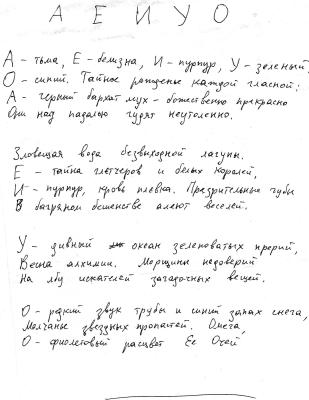 А Е И У О
А - тьма, Е - белизна, И - пурпур, У - зеленый,
О - синий. Тайное рожденье каждой гласной:
А - черный бархат мух - божественно прекрасно
Они над падалью гудят неутоленно.
Зловещая вода безвыходной лагуны.
Е - тайна глетчеров и белых королей,
И - пурпур, кровь плевка. Презрительные губы
В багряном бешенстве алеют веселей.
У - дивный океан зеленоватых прерий,
Весна алхимии. Морщины недоверий
На лбу искателей загадочных вещей.
О - редкий звук трубы и синий запах снега,
Молчанье звездных пропастей. Омега,
О - фиолетовый расцвет Ее Очей